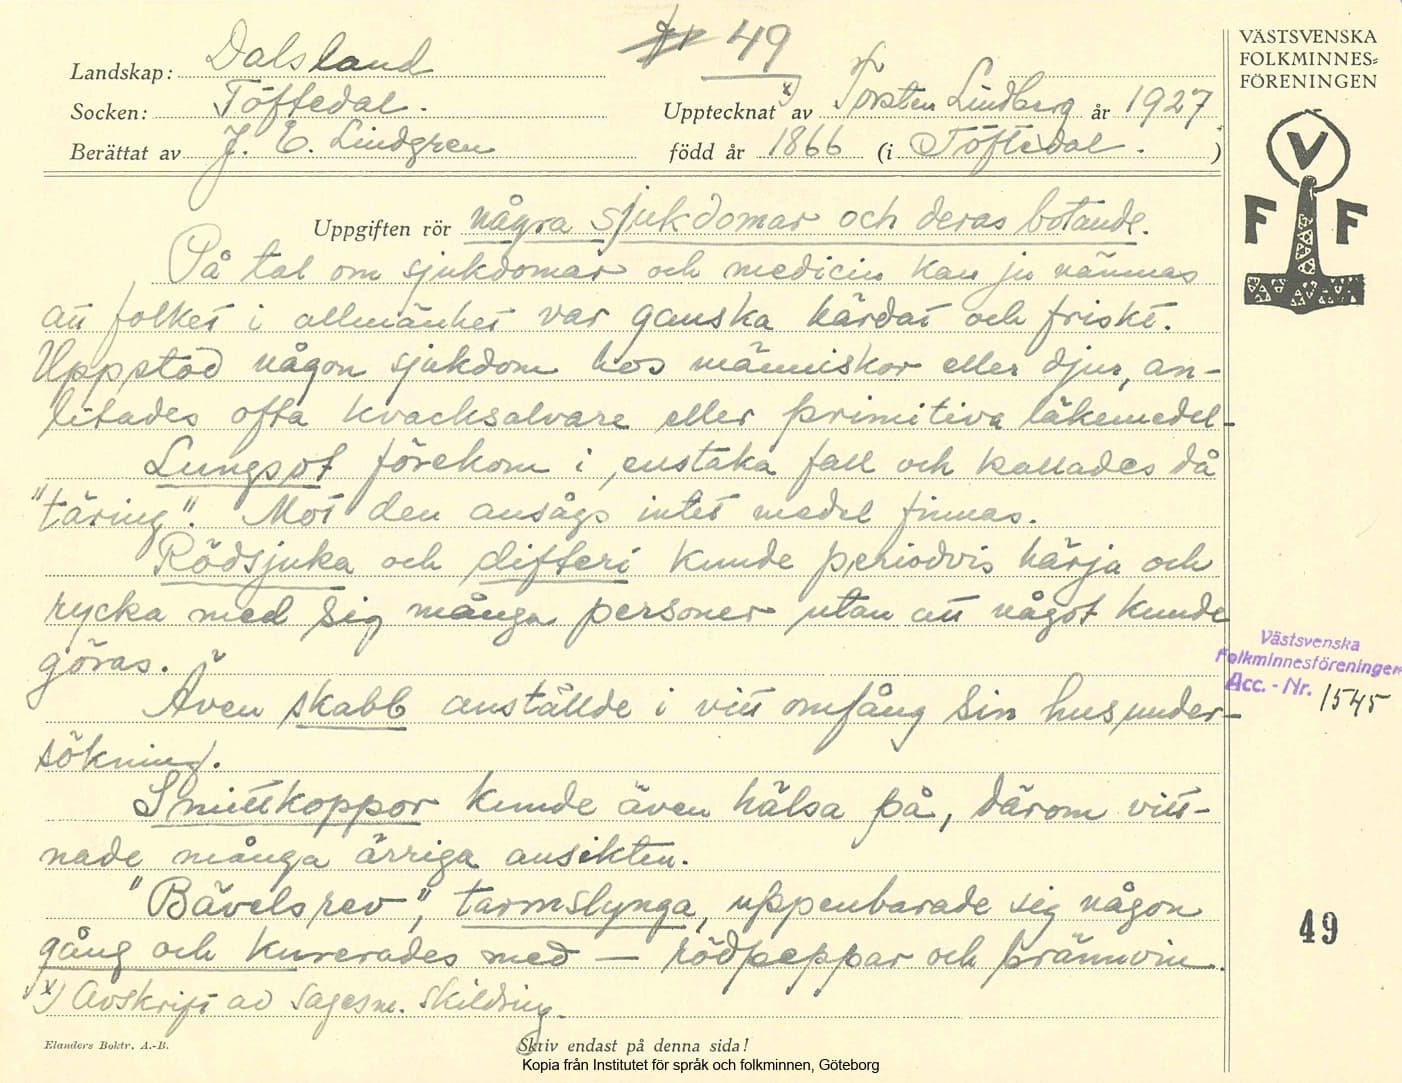 49
VÄSTSVENSKA
FOLKMINNES=
FÖRENINGEN
Landskap: Dalsland
Socken: Töftedal.
Upptecknat x) av Torsten Lindberg år 1927
Berättat av J. E. Lindgren
född år 1866 (i Töftedal. )
V
F F
Uppgiften rör några sjukdomar och deras botande.
På tal om sjukdomar och medicin kan ju nämnas
att folket i allmänhet var ganska härdat och friskt.
Uppstod någon sjukdom hos människor eller djur, an-
litades ofta kvacksalvare eller primitiva läkemedel.
Lungsot förekom i enstaka fall och kallades då
"täring". Mot den ansågs intet medel finnas.
Rödsjuka och difteri kunde periodvis härja och
rycka med sig många personer utan att något kunde
göras.
Även skabb anställde i vitt omfång sin husunder-
sökning.
Smittkoppor kunde även hälsa på, därom vitt-
nade många ärriga ansikten.
"Bävelsrev", tarmslynga, uppenbarade sig någon
gång och kurerades med — rödpeppar och brännvin.
x) Avskrift av sagesm. skildring.
Västsvenska
Folkminnesföreningen
Acc. - Nr. 1545
49
Elanders Boktr. A.-B.
Skriv endast på denna sida!
Kopia från Institutet för språk och folkminnen, Göteborg